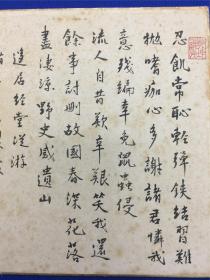 忍飢常恥輕彈鋏結習難
拋嗜痂心多謝諸君憐我
意殘編幸免鼠蟲侵
流人自昔歎辛艱笑我還
餘事訂刪故國春深花落
盡淒涼野史感遺山
居經堂從游